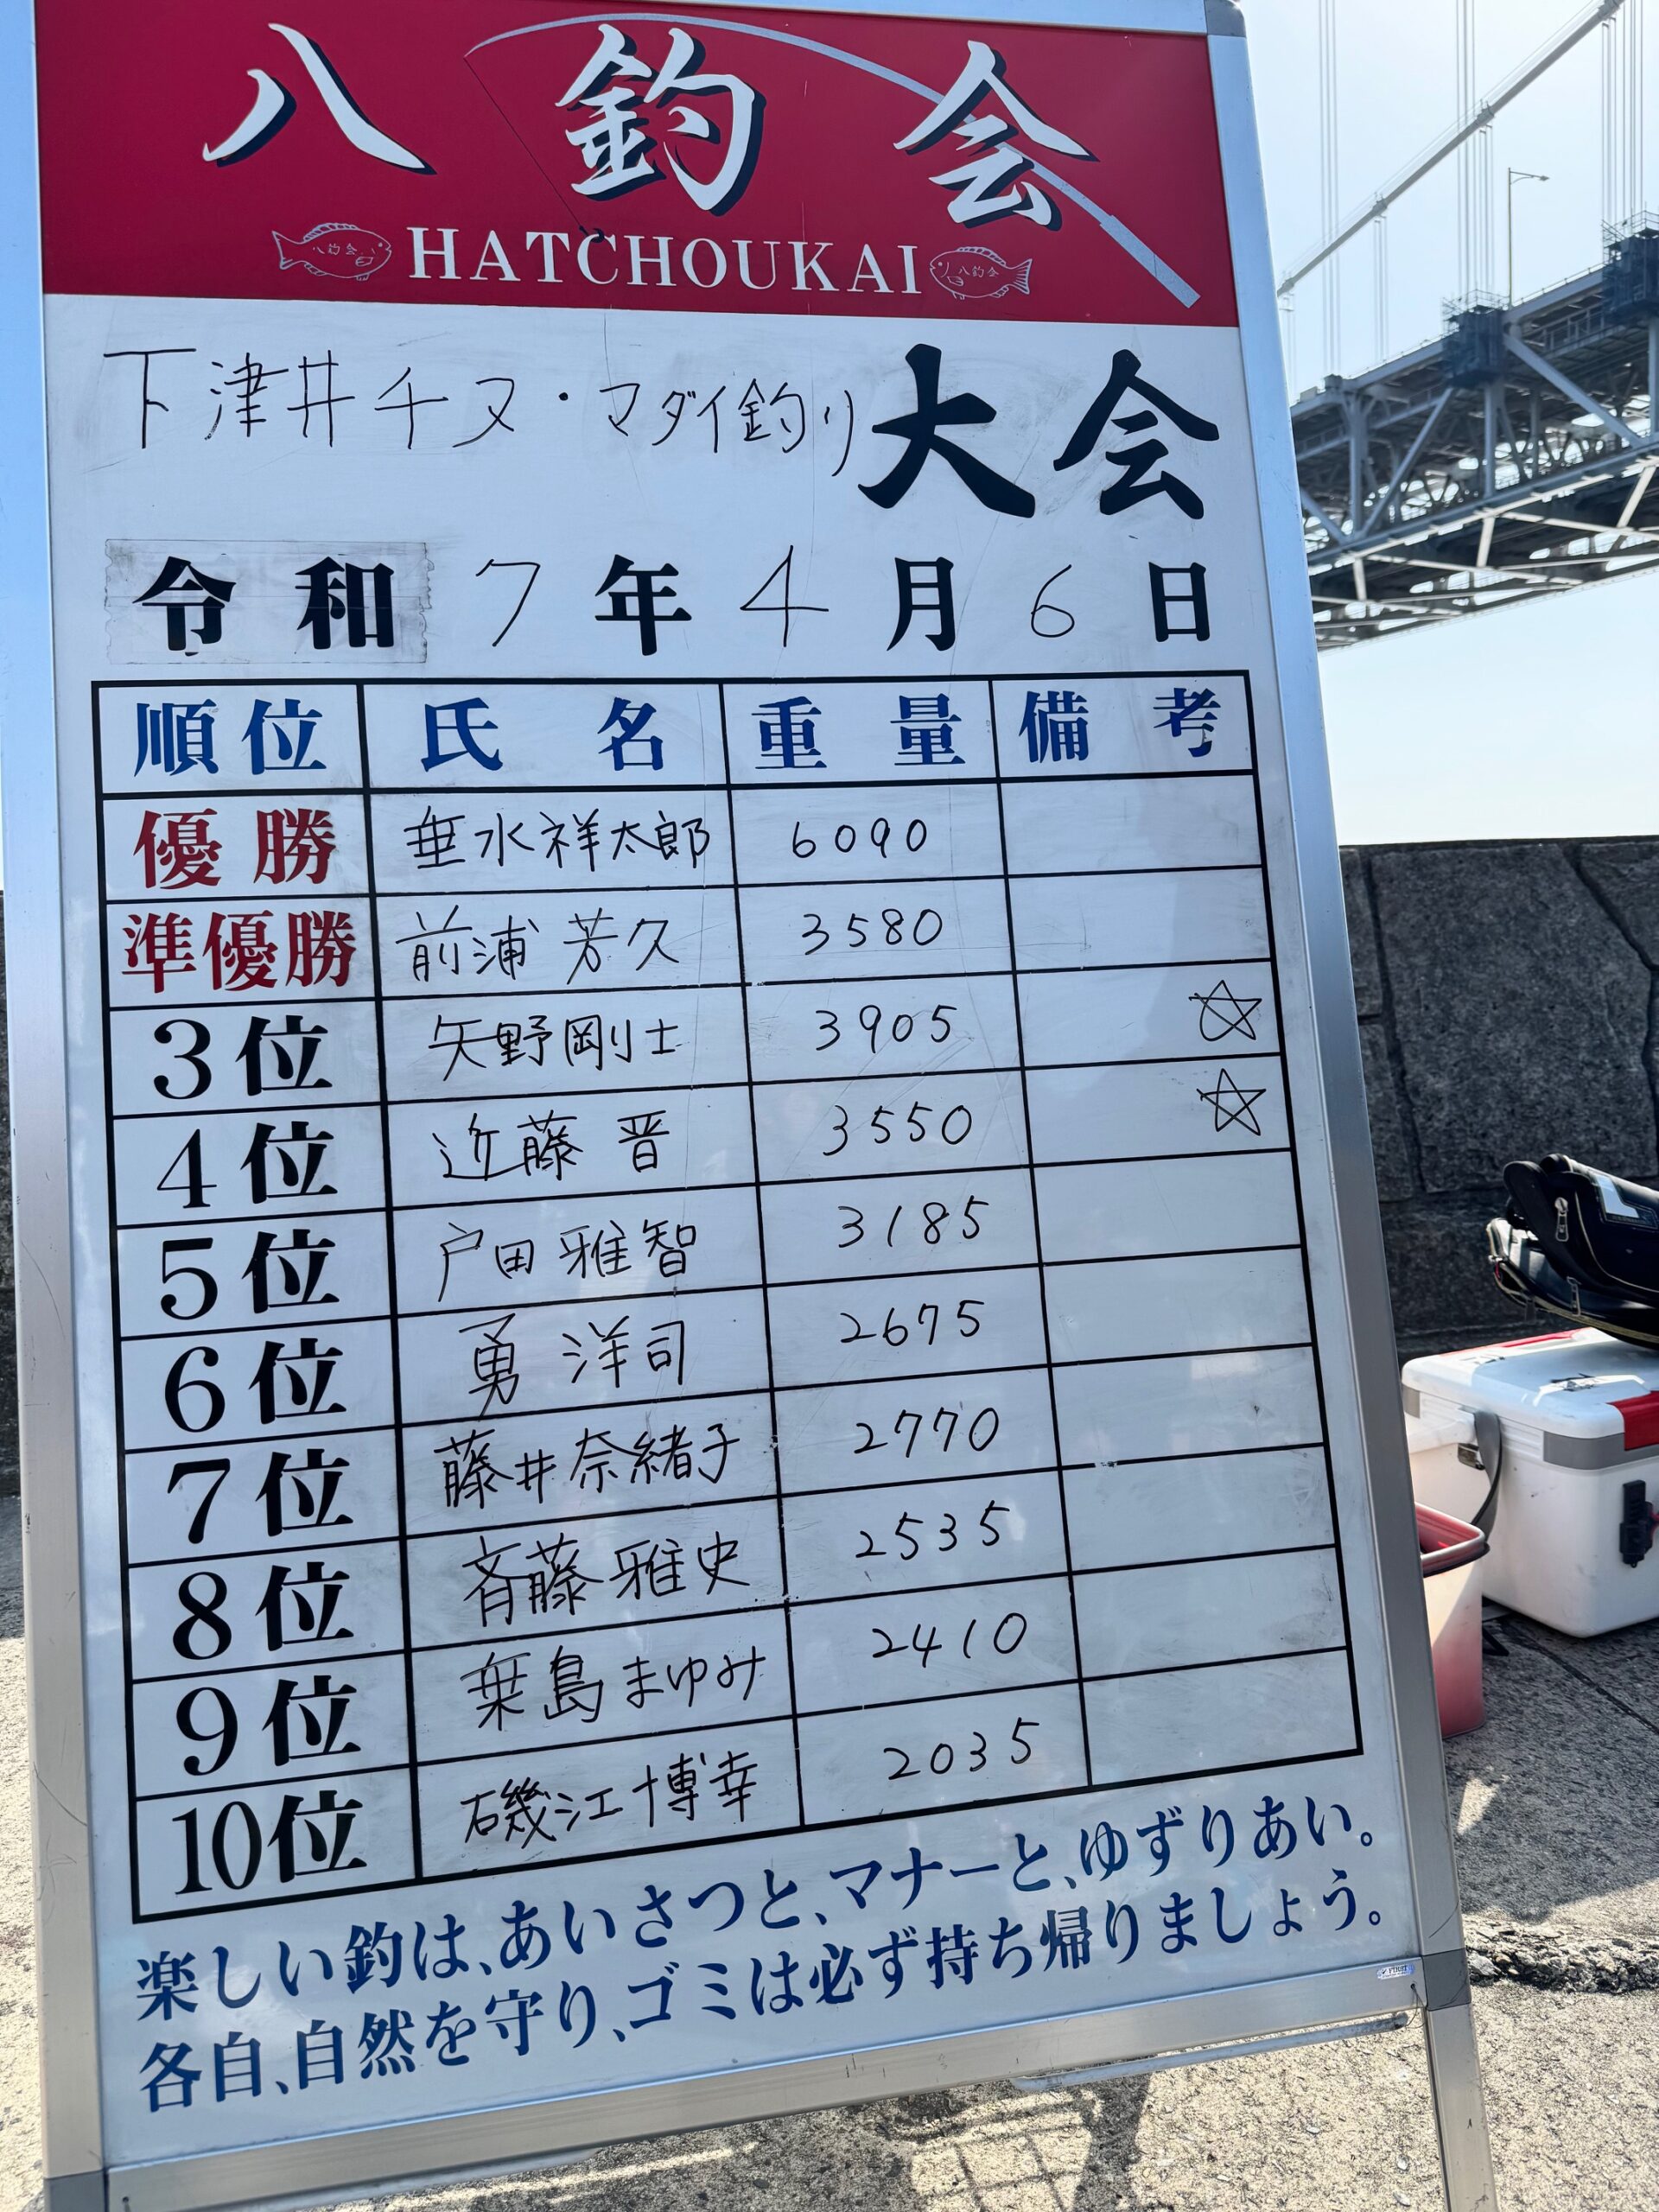 八釣会
八釣会 HATCHOUKAI 八釣会
下津井チヌ・マダイ釣り大会
令和7年4月6日
順位 氏名 重量 備考
優勝 垂水祥太郎 6090
準優勝 前浦芳久 3580
3位 矢野剛士 3905 ☆
4位 近藤晋 3550 ☆
5位 戸田雅智 3185
6位 勇洋司 2675
7位 藤井奈緒子 2770
8位 斉藤雅史 2535
9位 乗島まゆみ 2410
10位 磯江博幸 2035
楽しい釣は、あいさつと、マナーと、ゆずりあい。
各自、自然を守り、ゴミは必ず持ち帰りましょう。